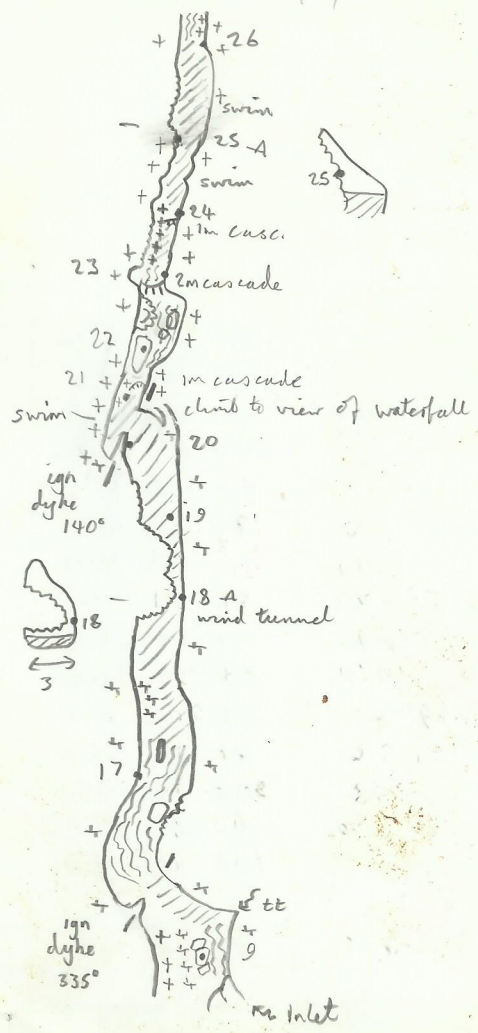 26
swim
25 A
25
swim
24
1m casc.
23
2m cascade
22
21
1m cascade
swim
climb to view of waterfall
20
ign
dyke
140°
19
18 A
18
wind tunnel
3
17
ign
dyke
335°
9
Inlet